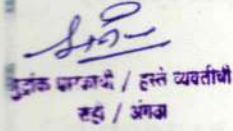 मुद्रांक घारकाची / हस्ते व्यक्तीची
सही / अंगठा